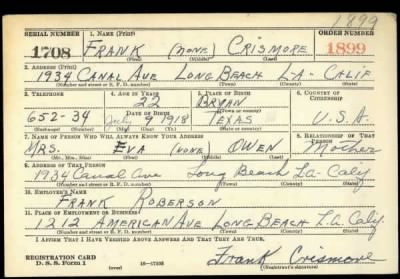 1899
SERIAL NUMBER 1. NAME (Print) ORDER NUMBER
1708 FRANK (NONE) CRISMORE 1899
(First) (Middle) (Last)
2. ADDRESS (Print)
1934 CANAL AVE LONG BEACH L-A- CALIF
(Number and street or R. F. D. number) (Town) (County) (State)
3. TELEPHONE 4. AGE IN YEARS 5. PLACE OF BIRTH 6. COUNTRY OF CITIZENSHIP
22 BRYAN
DATE OF BIRTH (Town or county)
652-34 July 9 1918 TEXAS U.S.A.
(Exchange) (Number) (Mo.) (Day) (Yr.) (State or country)
7. NAME OF PERSON WHO WILL ALWAYS KNOW YOUR ADDRESS 8. RELATIONSHIP OF THAT PERSON
MRS. EVA (NONE) OWEN Mother
(Mr., Mrs., Miss) (First) (Middle) (Last)
9. ADDRESS OF THAT PERSON
1934 Canal Ave Long Beach La- Caly
(Number and street or R. F. D. number) (Town) (County) (State)
10. EMPLOYER'S NAME
FRANK ROBERSON
11. PLACE OF EMPLOYMENT OR BUSINESS
1212 AMERICAN AVE LONG BEACH L.A. Caly.
(Number and street or R. F. D. number) (Town) (County) (State)
I AFFIRM THAT I HAVE VERIFIED ABOVE ANSWERS AND THAT THEY ARE TRUE.
REGISTRATION CARD
D. S. S. Form 1 (over) 16-17105 Frank Crismore
(Registrant's signature)